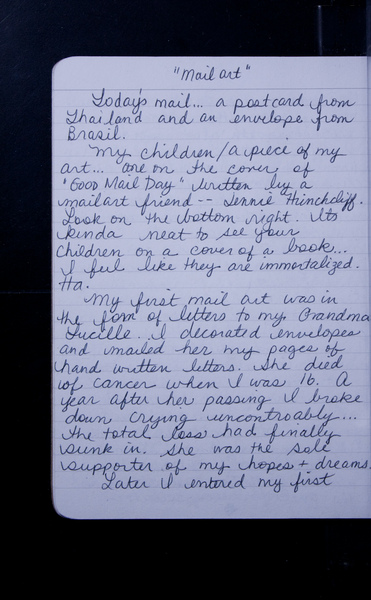 "Mail art"
Today's mail... a postcard from
Thailand and an envelope from
Brasil.
My children/a piece of my
art... are on the cover of
"Good Mail Day" written by a
mailart friend -- Jennie Hinchcliff.
Look on the bottom right. Its
kinda neat to see your
children on a cover of a book...
I feel like they are immortalized.
Ha.
My first mail art was in
the form of letters to my Grandma
Lucille. I decorated envelopes
and mailed her my pages of
hand written letters. She died
of cancer when I was 16. A
year after her passing I broke
down crying uncontroably...
The total loss had finally
sunk in. She was the sole
supporter of my hopes + dreams.
Later I entered my first